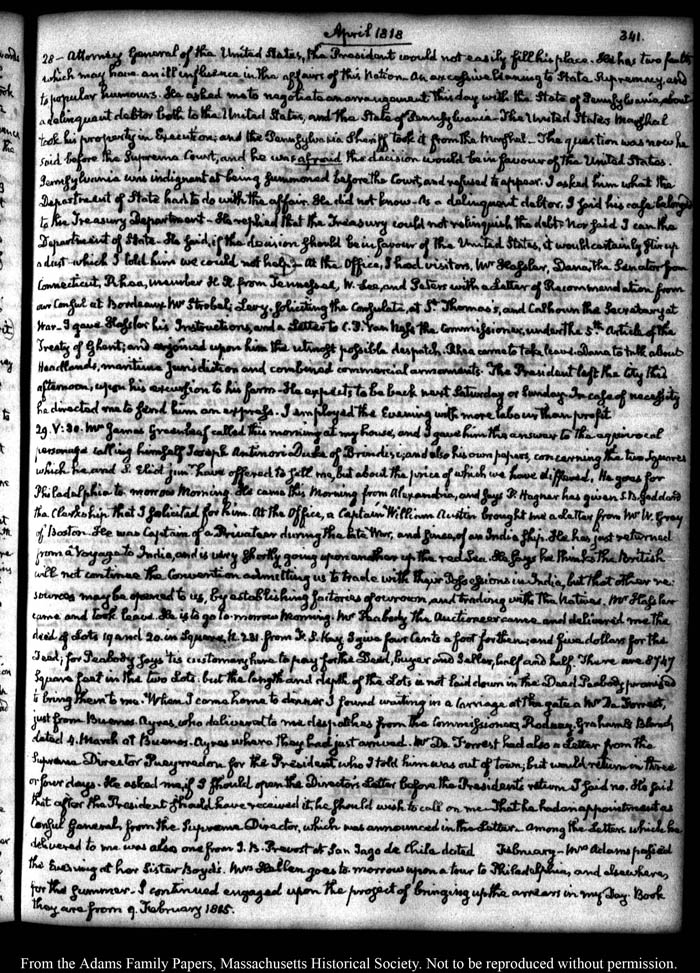 April 1818 341.
28 – Attorney General of the United States, the President would not easily fill his place. He has two faults
which may have an ill influence in the affairs of this Nation. An excessive leaning to State Supremacy, and
to popular humours. He asked me to negotiate an arrangement this day with the State of Pennsylvania, about
a delinquent debtor both to the United States, and the State of Pennsylvania – The United States Marshal
took his property in Execution; and the Pennsylvania Sheriff took it from the Marshal – The question was now he
said before the Supreme Court, and he was afraid the decision would be in favour of the United States.
Pennsylvania was indignant at being summoned before the Court, and refused to appear. I asked him what the
Department of State had to do with the affair. He did not know – As a delinquent debtor, I said his case belonged
to the Treasury Department – He replied that the Treasury could not relinquish the debt – Nor said I can the
Department of State – He said, if the decision should be in favour of the United States, it would certainly stir up
a dust – which I told him we could not help – At the Office, I had visitors, Mr Hassler, Dana, the Senator from
Connecticut, Rhea, member H. R. from Tennessee, W. Lee, and Peters with a Letter of Recommendation from
our Consul at Bordeaux Mr Strobel; Levy, soliciting the Consulate, at St. Thomas's, and Calhoun the Secretary at
War – I gave Hassler his Instructions, and a Letter to C. P. Van Ness the Commissioner, under the 5th Article of the
Treaty of Ghent; and enjoined upon him the utmost possible despatch. Rhea came to take leave – Dana to talk about
Headlands, maritime jurisdiction and combined commercial armaments. The President left the City this
afternoon, upon his excursion to his farm – He expects to be back next Saturday or Sunday – In case of necessity
he directed me to send him an express. I employed the Evening with more labour than profit
29. V: 30. Mr James Greenleaf called this morning at my house, and I gave him the answer to the equivocal
personage calling himself Joseph Antinori Duke of Brindisi; and also his own papers, concerning the two Squares
which he and S. Eliot junr. have offered to sell me, but about the price of which we have differed. He goes for
Philadelphia to-morrow Morning. He came this Morning from Alexandria, and says P. Hagner has given S. D. Goddard
the Clerkship that I solicited for him. At the Office, a Captain William Austin brought me a letter from Mr W. Gray
of Boston. He was Captain of a Privateer during the late War, and since, of an India Ship. He has just returned
from a Voyage to India, and is very shortly going upon another up the red Sea. He says he thinks the British
will not continue the Convention admitting us to trade with their Possessions in India, but that other re-
sources may be opened to us, by establishing factories of our own, and trading with the Natives. Mr Hassler
came and took leave. He is to go to-morrow Morning. Mr Peabody the Auctioneer came and delivered me the
deed of Lots 19 and 20. in Square, N. 231. from F. S. Key. I give four Cents a foot for them; and five dollars for the
Deed; for Peabody says 'tis customary here to pay for the Deed, buyer and Seller, half and half. There are 8747
Square feet in the two Lots: but the length and depth of the Lots is not laid down in the Deed. Peabody promised
to bring them to me. When I came home to dinner I found waiting in a Carriage at the gate a Mr De Forrest,
just from Buenos-Ayres, who delivered to me despatches from the Commissioners Rodney, Graham & Bland
dated 4. March at Buenos-Ayres where they had just arrived. Mr De Forrest had also a Letter from the
Supreme Director Pueyrredon for the President who I told him was out of town; but would return in three
or four days. He asked me if I should open the Director's Letter before the President's return. I said no. He said
that after the President should have received it, he should wish to call on me – That he had an appointment as
Consul General, from the Supreme Director, which was announced in the Letter. Among the Letters which he
delivered to me was also one from J. B. Prevost at San Iago de Chile dated February – Mrs Adams passed
the Evening at her Sister Boyd's. Mrs Hellen goes to-morrow upon a tour to Philadelphia, and elsewhere,
for the Summer – I continued engaged upon the project of bringing up the arrears in my Day-Book
they are from 9. February 1815.
From the Adams Family Papers, Massachusetts Historical Society. Not to be reproduced without permission.